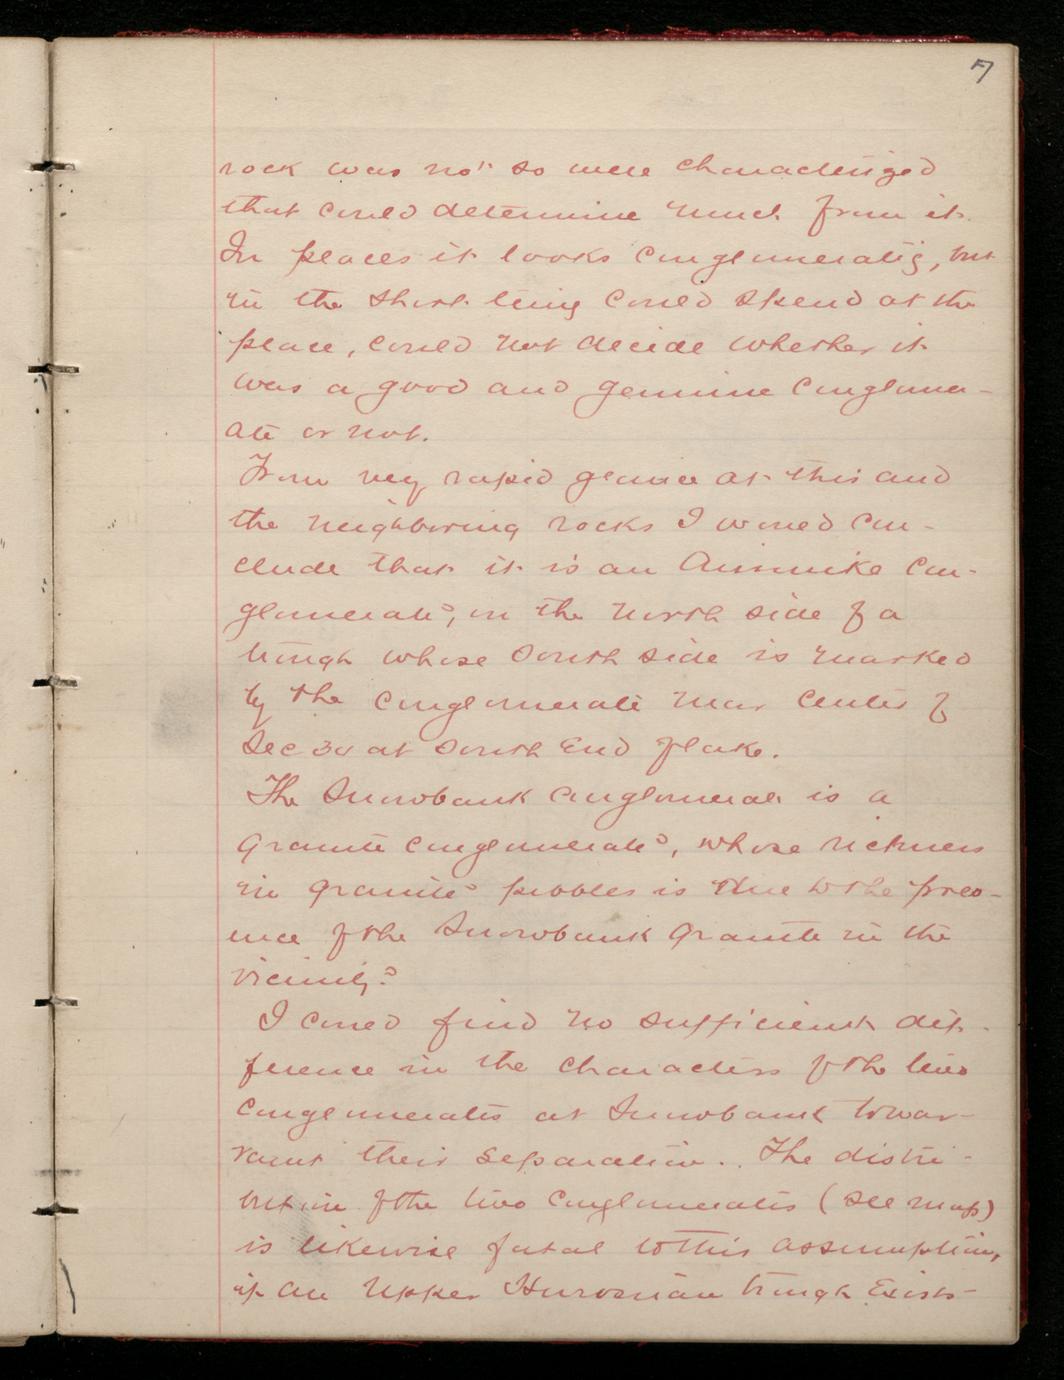 7
rock was not so well characterized
that could determine much from it.
In places it looks conglomeratic, but
in the short time could spend at the
place, could not decide whether it
was a good and genuine conglomer-
ate or not.
From very rapid glance at this and
the neighboring rocks I would con-
clude that it is an Animike con-
glomerate, on the north side of a
trough whose south side is marked
by the conglomerate near center of
Sec 30 at south end of lake.
The Snowbank conglomerate is a
granite conglomerate, whose richness
in granite pebbles is due to the pres-
ence of the Snowbank granite in the
vicinity.
I could find no sufficient dif-
ference in the characters of the two
conglomerates at Snowbank to war-
rant their separation. The distri-
bution of the two conglomerates (see map)
is likewise fatal to this assumption,
if an Upper Huronian trough exists